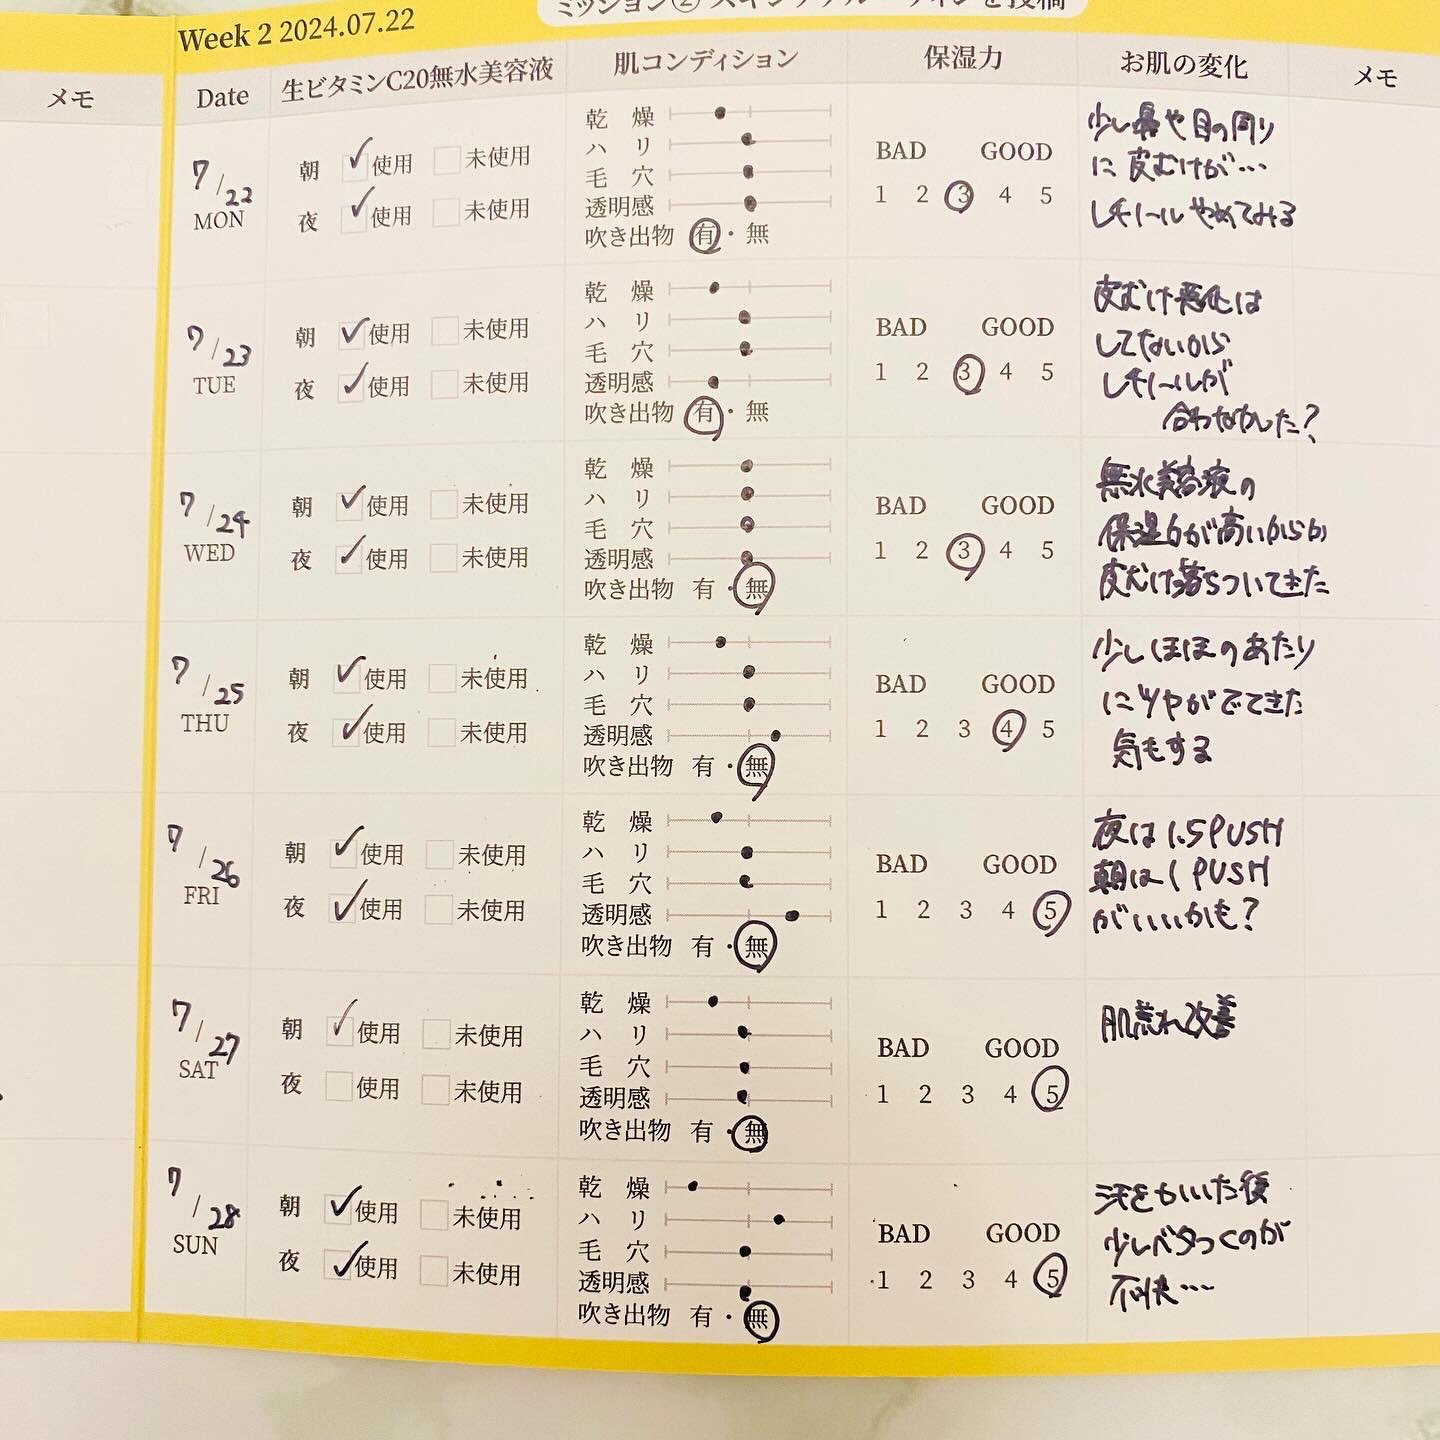 ミッション② スキンケアルーティンを投稿
Week 2 2024.07.22
メモ
Date 生ビタミンC20無水美容液 肌コンディション 保湿力 お肌の変化 メモ
7/22
MON
朝 使用 未使用
夜 使用 未使用
乾 燥
ハ リ
毛 穴
透明感
吹き出物 有・無
BAD GOOD
1 2 3 4 5
少し鼻や目の周り
に皮むけが…
レチノールやめてみる
7/23
TUE
朝 使用 未使用
夜 使用 未使用
乾 燥
ハ リ
毛 穴
透明感
吹き出物 有・無
BAD GOOD
1 2 3 4 5
皮むけ悪化は
してないから
レチノールが
合わなかった?
7/24
WED
朝 使用 未使用
夜 使用 未使用
乾 燥
ハ リ
毛 穴
透明感
吹き出物 有・無
BAD GOOD
1 2 3 4 5
無水美容液の
保湿力が高いからか
皮むけ落ちついてきた
7/25
THU
朝 使用 未使用
夜 使用 未使用
乾 燥
ハ リ
毛 穴
透明感
吹き出物 有・無
BAD GOOD
1 2 3 4 5
少しほほのあたり
にツヤがでてきた
気もする
7/26
FRI
朝 使用 未使用
夜 使用 未使用
乾 燥
ハ リ
毛 穴
透明感
吹き出物 有・無
BAD GOOD
1 2 3 4 5
夜は1.5PUSH
朝は1PUSH
がいいかも?
7/27
SAT
朝 使用 未使用
夜 使用 未使用
乾 燥
ハ リ
毛 穴
透明感
吹き出物 有・無
BAD GOOD
1 2 3 4 5
肌荒れ改善
7/28
SUN
朝 使用 未使用
夜 使用 未使用
乾 燥
ハ リ
毛 穴
透明感
吹き出物 有・無
BAD GOOD
1 2 3 4 5
汗をかいた後
少しベタつくのが
不快…